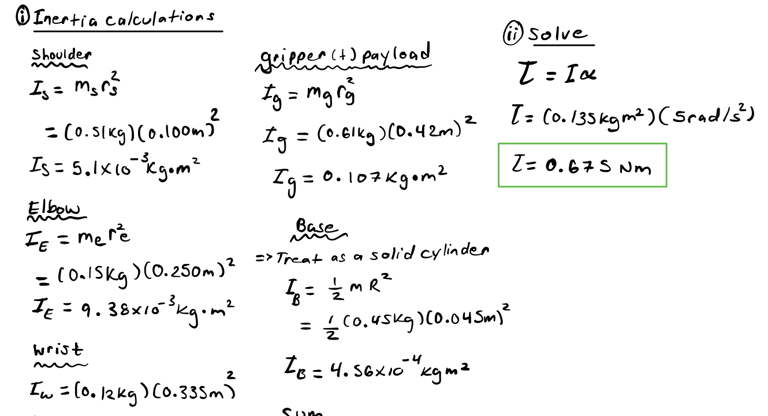 ① Inertia calculations
Shoulder
I_s = m_s r_s^2
= (0.51kg)(0.100m)^2
I_s = 5.1x10^-3 kg•m^2
Elbow
I_E = m_e r_e^2
= (0.15kg)(0.250m)^2
I_E = 9.38x10^-3 kg•m^2
wrist
I_w = (0.12kg)(0.335m)^2
gripper (+) payload
I_g = m_g r_g^2
I_g = (0.61kg)(0.42m)^2
I_g = 0.107 kg•m^2
Base
=> Treat as a solid cylinder
I_B = 1/2 m R^2
= 1/2 (0.45kg)(0.045m)^2
I_B = 4.56x10^-4 kg m^2
ⅱ Solve
τ = Iα
τ = (0.135kgm^2)(5rad/s^2)
τ = 0.675 Nm